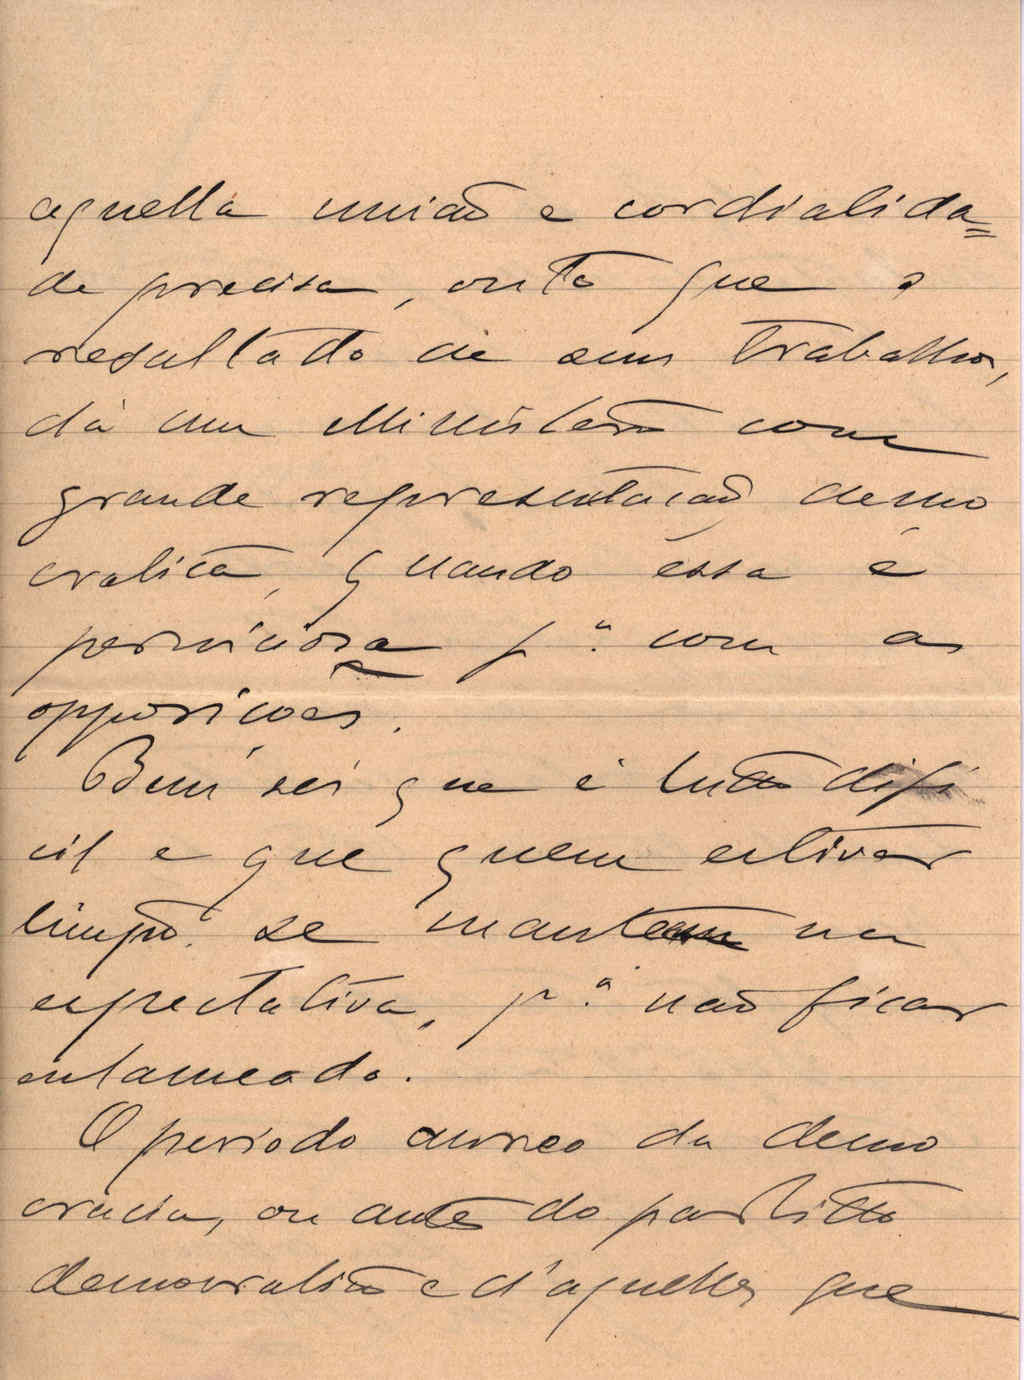 aquella união e cordialida=
de precisa, visto que o
resultado de seus trabalhos,
dá um Ministerio com
grande representação demo
cratica, quando essa é
perniciosa pª. com as
opposicoes.
Bem sei que é tudo difi
cil e que quem estiver
limpo. se mantem na
expectativa, pª. não ficar
enlameado.
O periodo aureo da demo
cracia, ou antes do partido
democratico e d'aquelles que